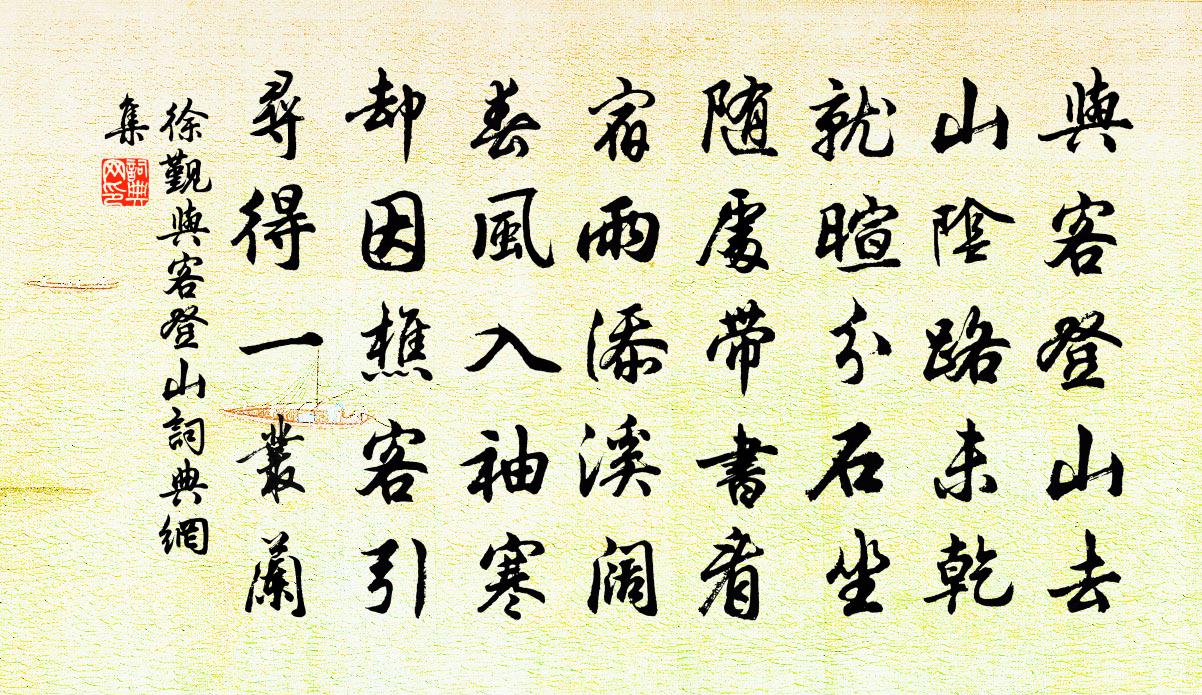 與客登山去
山陰路未乾
就暄分石坐
随處帶書看
宿雨添溪闊
春風入袖寒
却因樵客引
尋得一叢蘭
徐觀與客登山詞典網
集
詞典網印